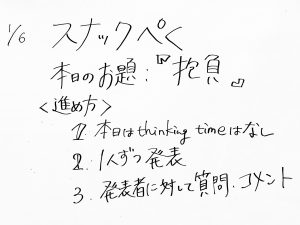 1/6 スナックぺく
本日のお題:『抱負』
<進め方>
1. 本日はthinking timeはなし
2. 1人ずつ発表
3. 発表者に対して質問.コメント